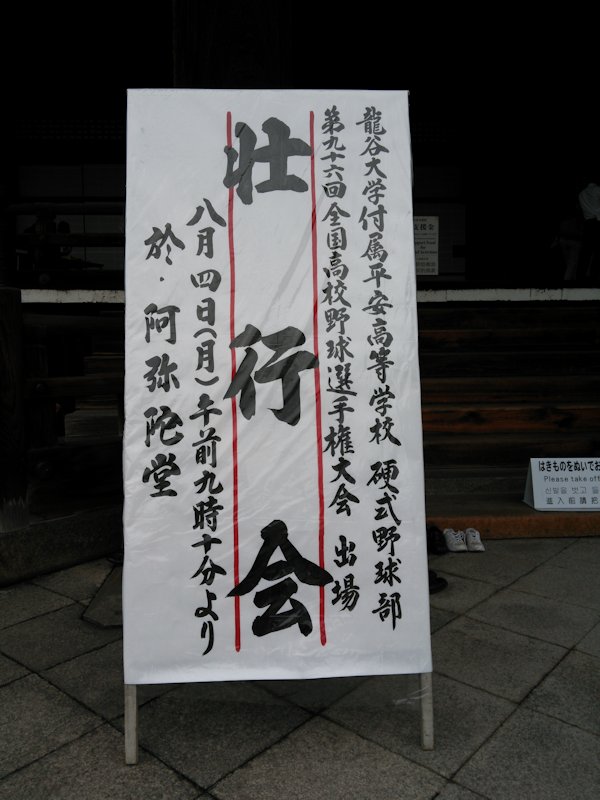 龍谷大学付属平安高等学校 硬式野球部
第九十六回全国高校野球選手権大会 出場
壮行会
八月四日(月)午前九時十分より
於・阿弥陀堂
支援金
はきものをぬいでお
Please take off
신발을 벗고 들
進入組請把